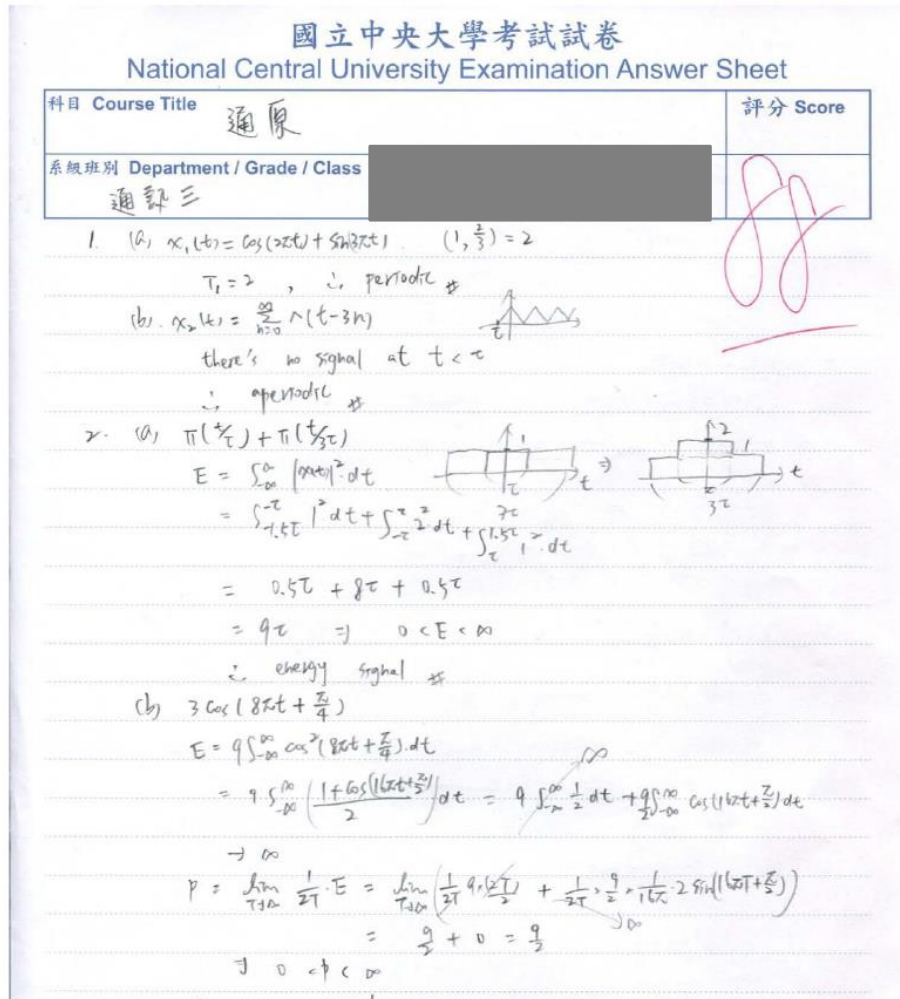 國立中央大學考試試卷
National Central University Examination Answer Sheet
科目 Course Title 通原
評分 Score
系級班別 Department / Grade / Class
通訊三
88
1. (a) x₁(t) = cos(2πt) + sin(3πt). (1, 2/3) = 2
T₁ = 2, ∴ periodic #
(b). x₂(t) = ∑_{n=0}^{∞} Λ(t-3n)
τ
there's no signal at t < τ
∴ aperiodic #
2. (a) π(t/τ) + π(t/3τ)
1 τ t 3τ ⇒ 2 1 t τ 3τ
E = ∫_{-∞}^{∞} |x(t)|² dt
= ∫_{-1.5τ}^{-τ} 1² dt + ∫_{-τ}^{τ} 2² dt + ∫_{τ}^{1.5τ} 1² dt
= 0.5τ + 8τ + 0.5τ
= 9τ ⇒ 0 < E < ∞
∴ energy signal #
(b) 3 cos(8πt + π/4)
E = 9∫_{-∞}^{∞} cos²(8πt + π/4).dt
= 9 ∫_{-∞}^{∞} (1 + cos(16πt + π/2) / 2) dt = 9 ∫_{-∞}^{∞} 1/2 dt + 9/2 ∫_{-∞}^{∞} cos(16πt + π/2) dt
∞
→ ∞
P = lim_{T→∞} 1/2T · E = lim_{T→∞} (1/2T · 9 · (2T)/2 + 1/2T · 9/2 · 1/16π · 2 sin(16πT + π/2))
= 9/2 + 0 = 9/2
⇒ 0 < P < ∞